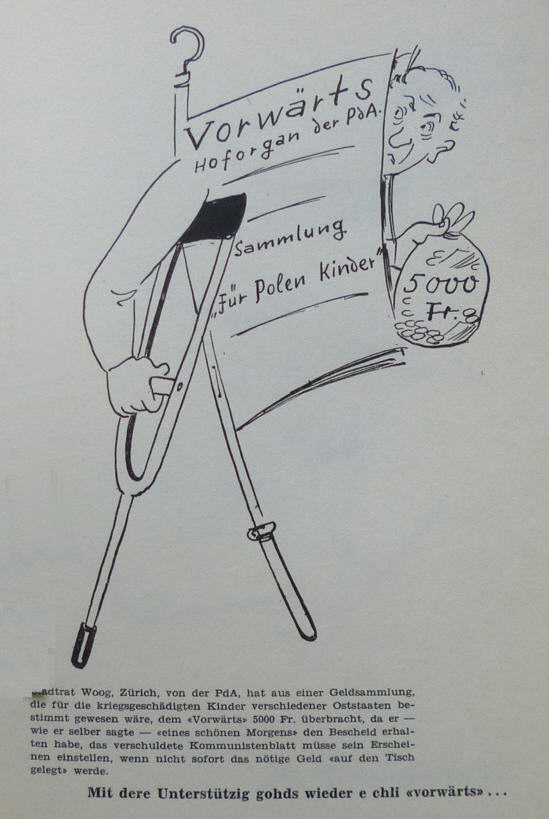 Vorwärts
Hoforgan der PdA.
Sammlung
"Für Polen Kinder"
5000
Fr.
adtrat Woog, Zürich, von der PdA, hat aus einer Geldsammlung,
die für die kriegsgeschädigten Kinder verschiedener Oststaaten be-
stimmt gewesen wäre, dem «Vorwärts» 5000 Fr. überbracht, da er —
wie er selber sagte — «eines schönen Morgens» den Bescheid erhal-
ten habe, das verschuldete Kommunistenblatt müsse sein Erschei-
nen einstellen, wenn nicht sofort das nötige Geld «auf den Tisch
gelegt» werde.
Mit dere Unterstützig gohds wieder e chli «vorwärts» ...